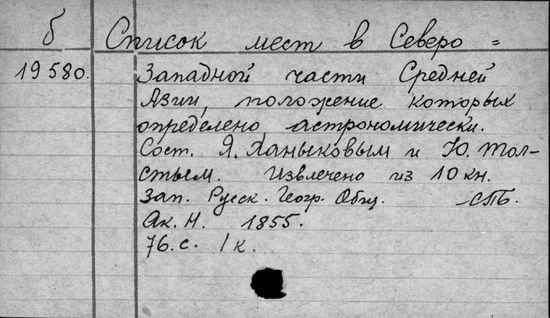 б Список мест в Северо =
19580. Западной части Средней
Азии, положение которых
определено астрономически.
Сост. Я. Ханыковым и Ю. Тол-
стым. Извлечено из 10 кн.
Зап. Русск. Геогр. Общ. СПБ.
Ак. Н. 1855.
76. с. 1 к.